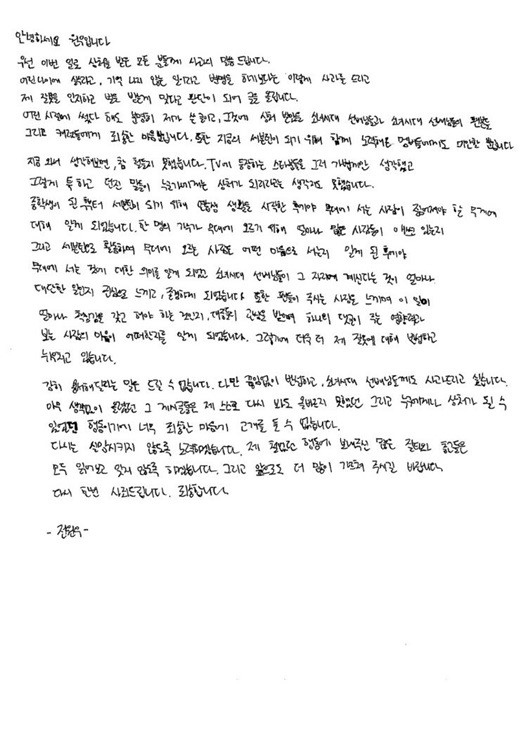 안녕하세요 원우입니다
우선 이번 일로 상처를 받은 모든 분들께 사과의 말씀 드립니다.
어린나이에 썼다고, 기억 나지 않는 일이라고 변명을 하기보다는 이렇게 사과를 드리고
제 잘못을 인지하고 벌을 받는게 맞다고 판단이 되어 글을 올립니다.
어린 시절에 썼다 해도 분명히 제가 쓴 글이고, 그것에 상처 받았을 소녀시대 선배님들과 소녀시대 선배님들의 팬분들
그리고 캐럿들에게 죄송한 마음뿐입니다. 또한 지금의 세븐틴이 되기 위해 함께 노력해온 멤버들에게도 미안한 맘뿐입니다
지금 와서 생각해보면, 참 철들지 못했습니다. TV에 등장하는 스타님들을 그저 가볍게만 생각했고
그렇게 툭 하고 던진 말들이 누군가에게는 상처가 되리라고는 생각치도 못했습니다.
중학생이 된 후부터 세븐틴이 되기 위해 연습생 생활을 시작한 후에야 무대에 서는 사람이 짊어져야 할 무게에
대해 알게 되었습니다. 한 명의 가수가 무대에 오르기 위해 얼마나 많은 사람들이 애쓰고 있는지
그리고 세븐틴으로 활동하며 무대에 오르는 사람은 어떤 마음으로 서는지 알게 된 후에야
무대에 서는 것에 대한 의미를 알게 되었고 소녀시대 선배님들이 그 자리에 계신다는 것이 얼마나
대단한 일인지 진심으로 느끼고, 존경하게 되었습니다. 또한 팬들이 주시는 사랑도 느끼며 이 일이
얼마나 책임감을 갖고 해야 하는 것인지, 대중들의 관심을 받으며 하나의 댓글이 주는 영향력과
보는 사람의 마음이 어떠한지를 알게 되었습니다. 그렇기에 더욱 더 제 잘못에 대해 반성하고
뉘우치고 있습니다.
감히 용서해달라는 말은 드릴 수 없습니다. 다만 끊임없이 반성하고, 소녀시대 선배님들께도 사과드리고 싶습니다.
아무 생각없이 올렸었고 그 게시글들은 제 스스로 다시 봐도 올바르지 못했었고 그리고 누구에게나 상처가 될 수
있었던 행동이기에 너무 죄송한 마음에 고개를 들 수 없습니다.
다시는 실망시키지 않도록 노력하겠습니다. 제 철없던 행동에 보내주신 많은 질타와 충고들은
모두 읽어보고 잊지 않도록 하겠습니다. 그리고 앞으로도 더 많이 가르쳐 주시길 바랍니다.
다시 한번 사죄드립니다. 죄송합니다.
- 전원우 -